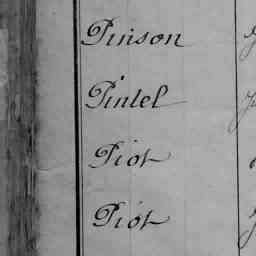 Pinson
Pintel
Piot
Piot